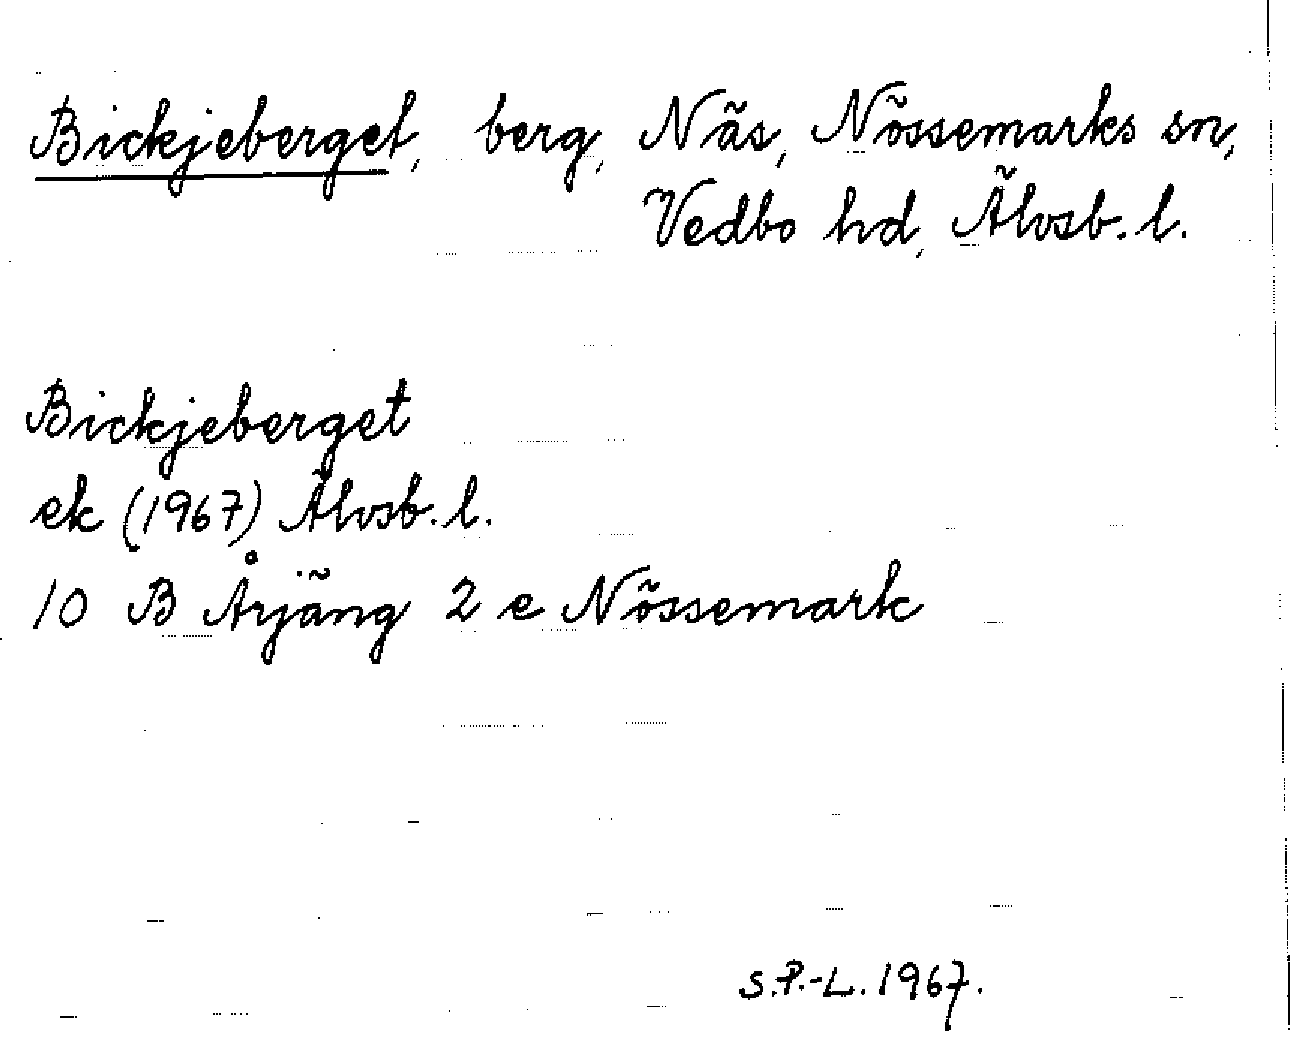 Bickjeberget, berg, Näs, Nössemarks sn,
Vedbo hd, Älvsb. l.
Bickjeberget
ek (1967) Älvsb. l.
10 B Årjäng 2 e Nössemark
S.P.-L. 1967.